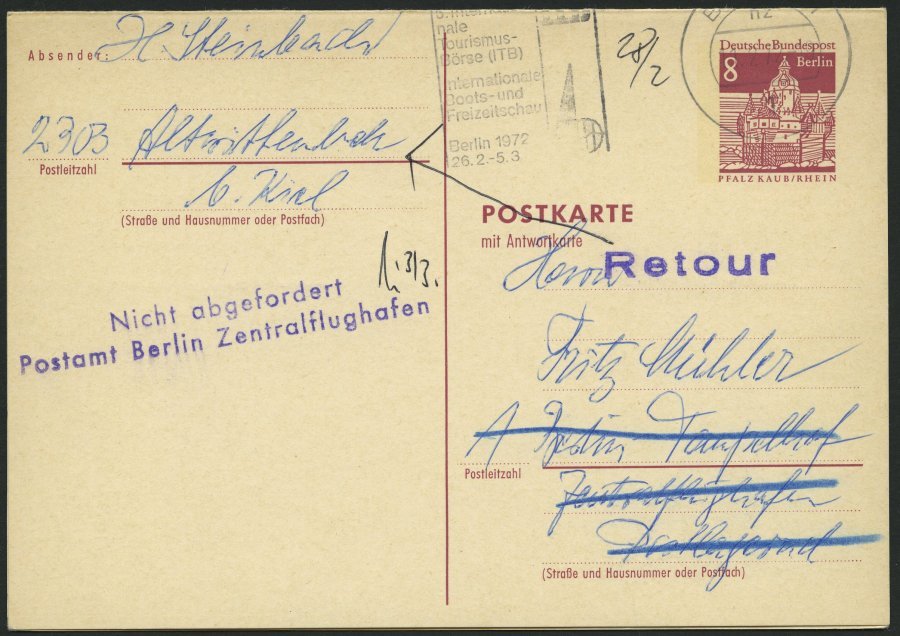 Absender:
H. Steinbach
2303 Altwittenbek
Postleitzahl
b. Kiel
(Straße und Hausnummer oder Postfach)
nale
Tourismus-
Börse (ITB)
Internationale
Boots- und
Freizeitschau
Berlin 1972
26.2.-5.3
28/2
Deutsche Bundespost
8 Berlin
PFALZ KAUB/RHEIN
POSTKARTE
mit Antwortkarte
Retour
3/3.
Nicht abgefordert
Postamt Berlin Zentralflughafen
Herrn
Fritz Mühler
1 Berlin Tempelhof
Postleitzahl
Zentralflughafen
Postlagernd
(Straße und Hausnummer oder Postfach)